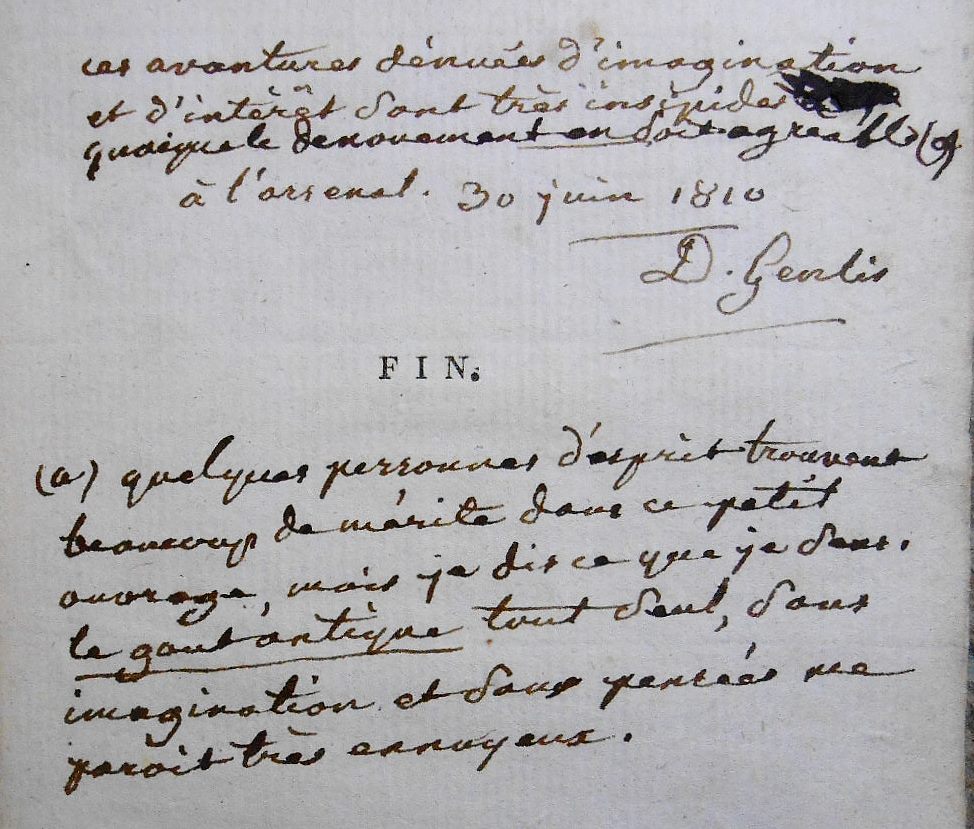 ces avantures dénuées d'imagination
et d'intérêt sont très insipides
quoique le denouement en soit agréable (a)
à l'arsenal. 30 juin 1810
D. Genlis
FIN.
(a) quelques personnes d'esprit trouvent
beaucoup de mérite dans ce petit
ouvrage, mais je dis ce que je sens.
le gout antique tout seul, sans
imagination et sans pensées me
paroit très ennuyeux.